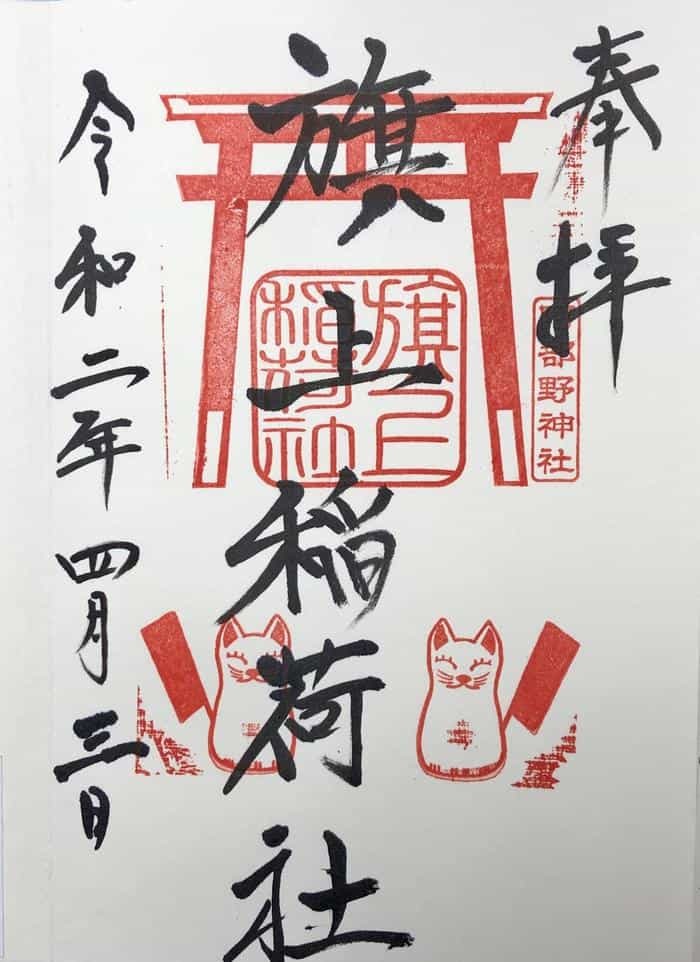 奉拝
部野神社
旗上稲荷社
旗上
稲荷社
令和二年四月三日